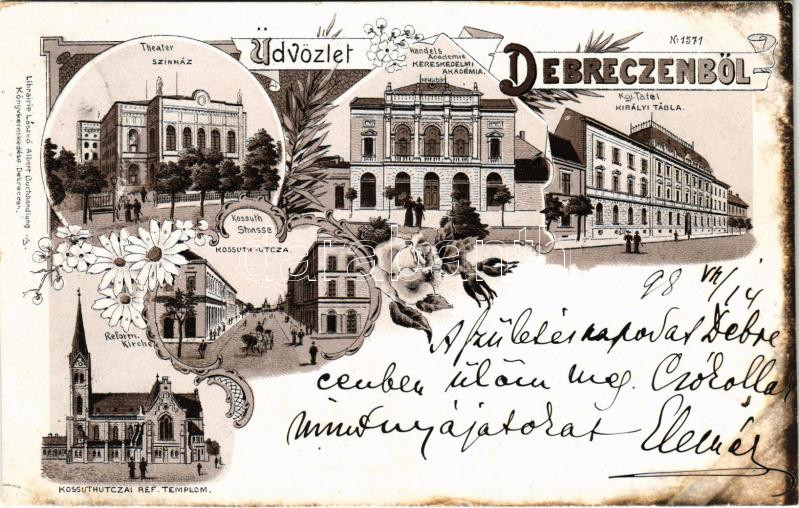 Üdvözlet
DEBRECZENBŐL
N: 1571
Theater
SZINHÁZ
Handels
Academie
KERESKEDELMI
AKADÉMIA.
Kgl. Tafel
KIRÁLYI TÁBLA.
Librairie László Albert Buchhandlung
Könyvkereskedése Debreczen.
Kossuth
Strasse
KOSSUTH-UTCZA.
Reform.
Kirche
KOSSUTHUTCZAI REF. TEMPLOM.
98 VII/14
A születésnapodat Debre
cenben ülöm meg. Csókollak
mindnyájatokat Elemér
darabanth